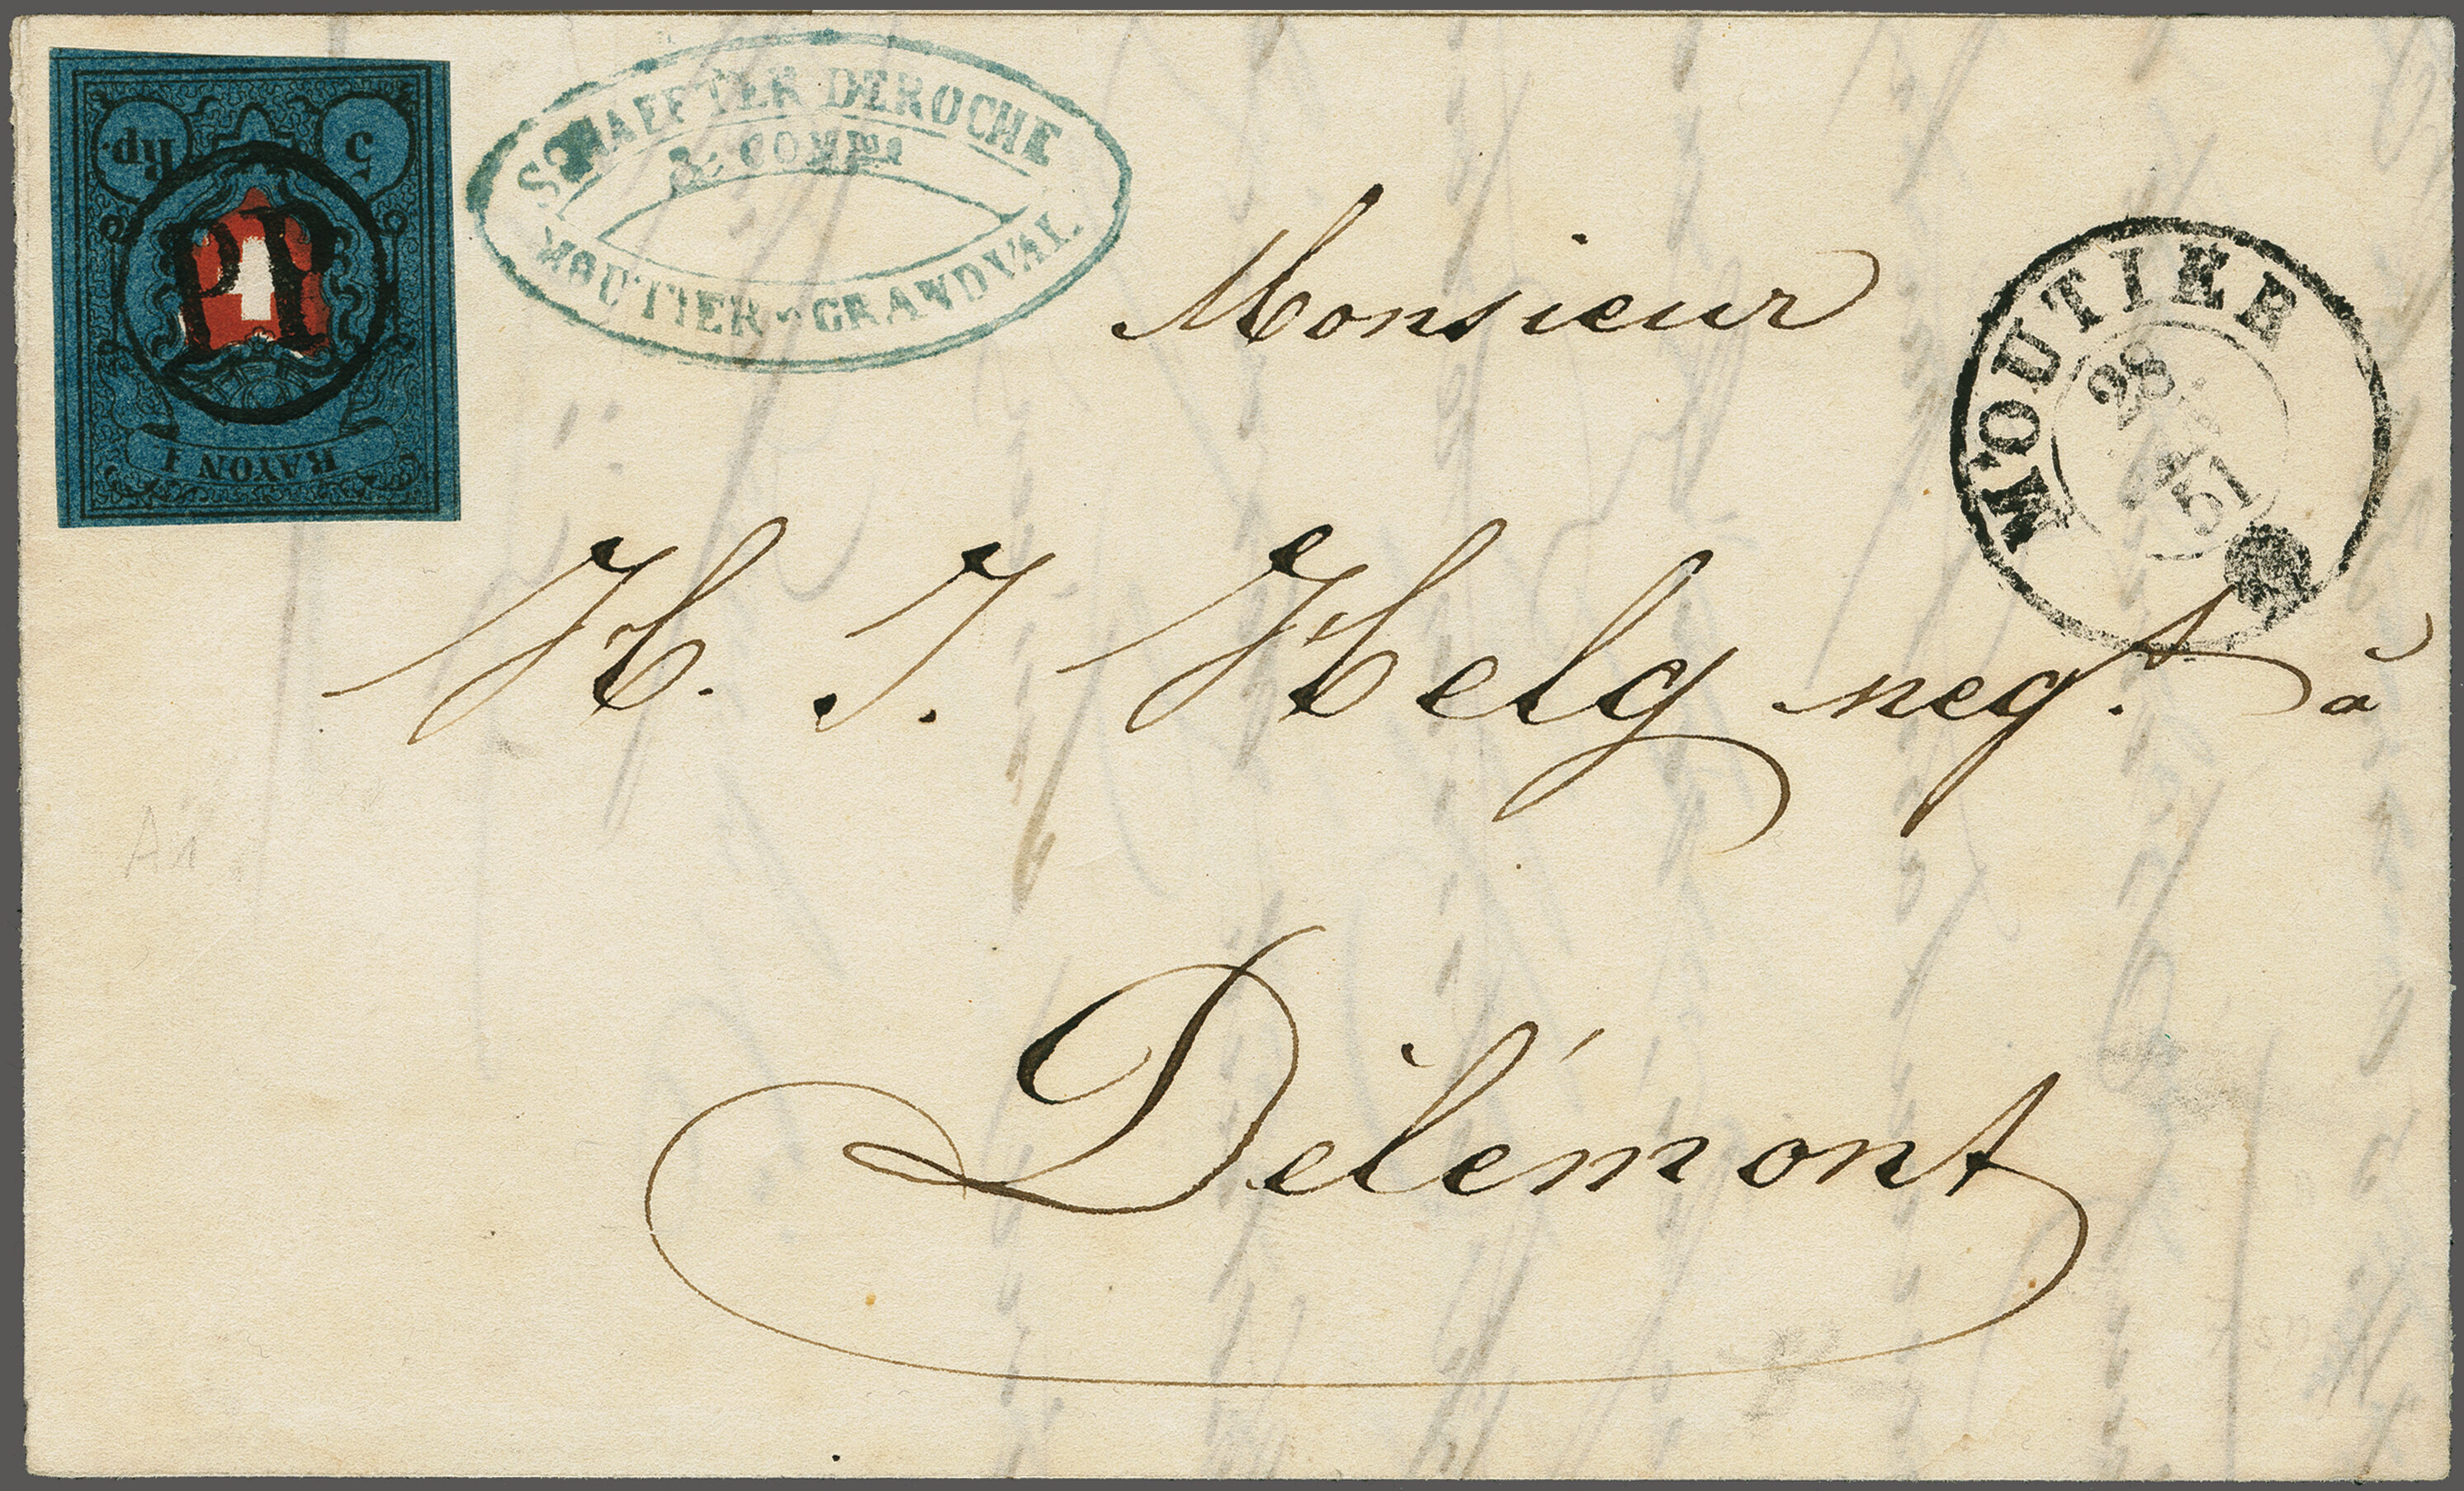 5 Rp.
PP
RAYON I
SCHAFFTER DEROCHE
& COMP
MOUTIER-GRANDVAL
MOUTIER
28
51
Monsieur
H. J. Helg neg.t à
Délémont
A1